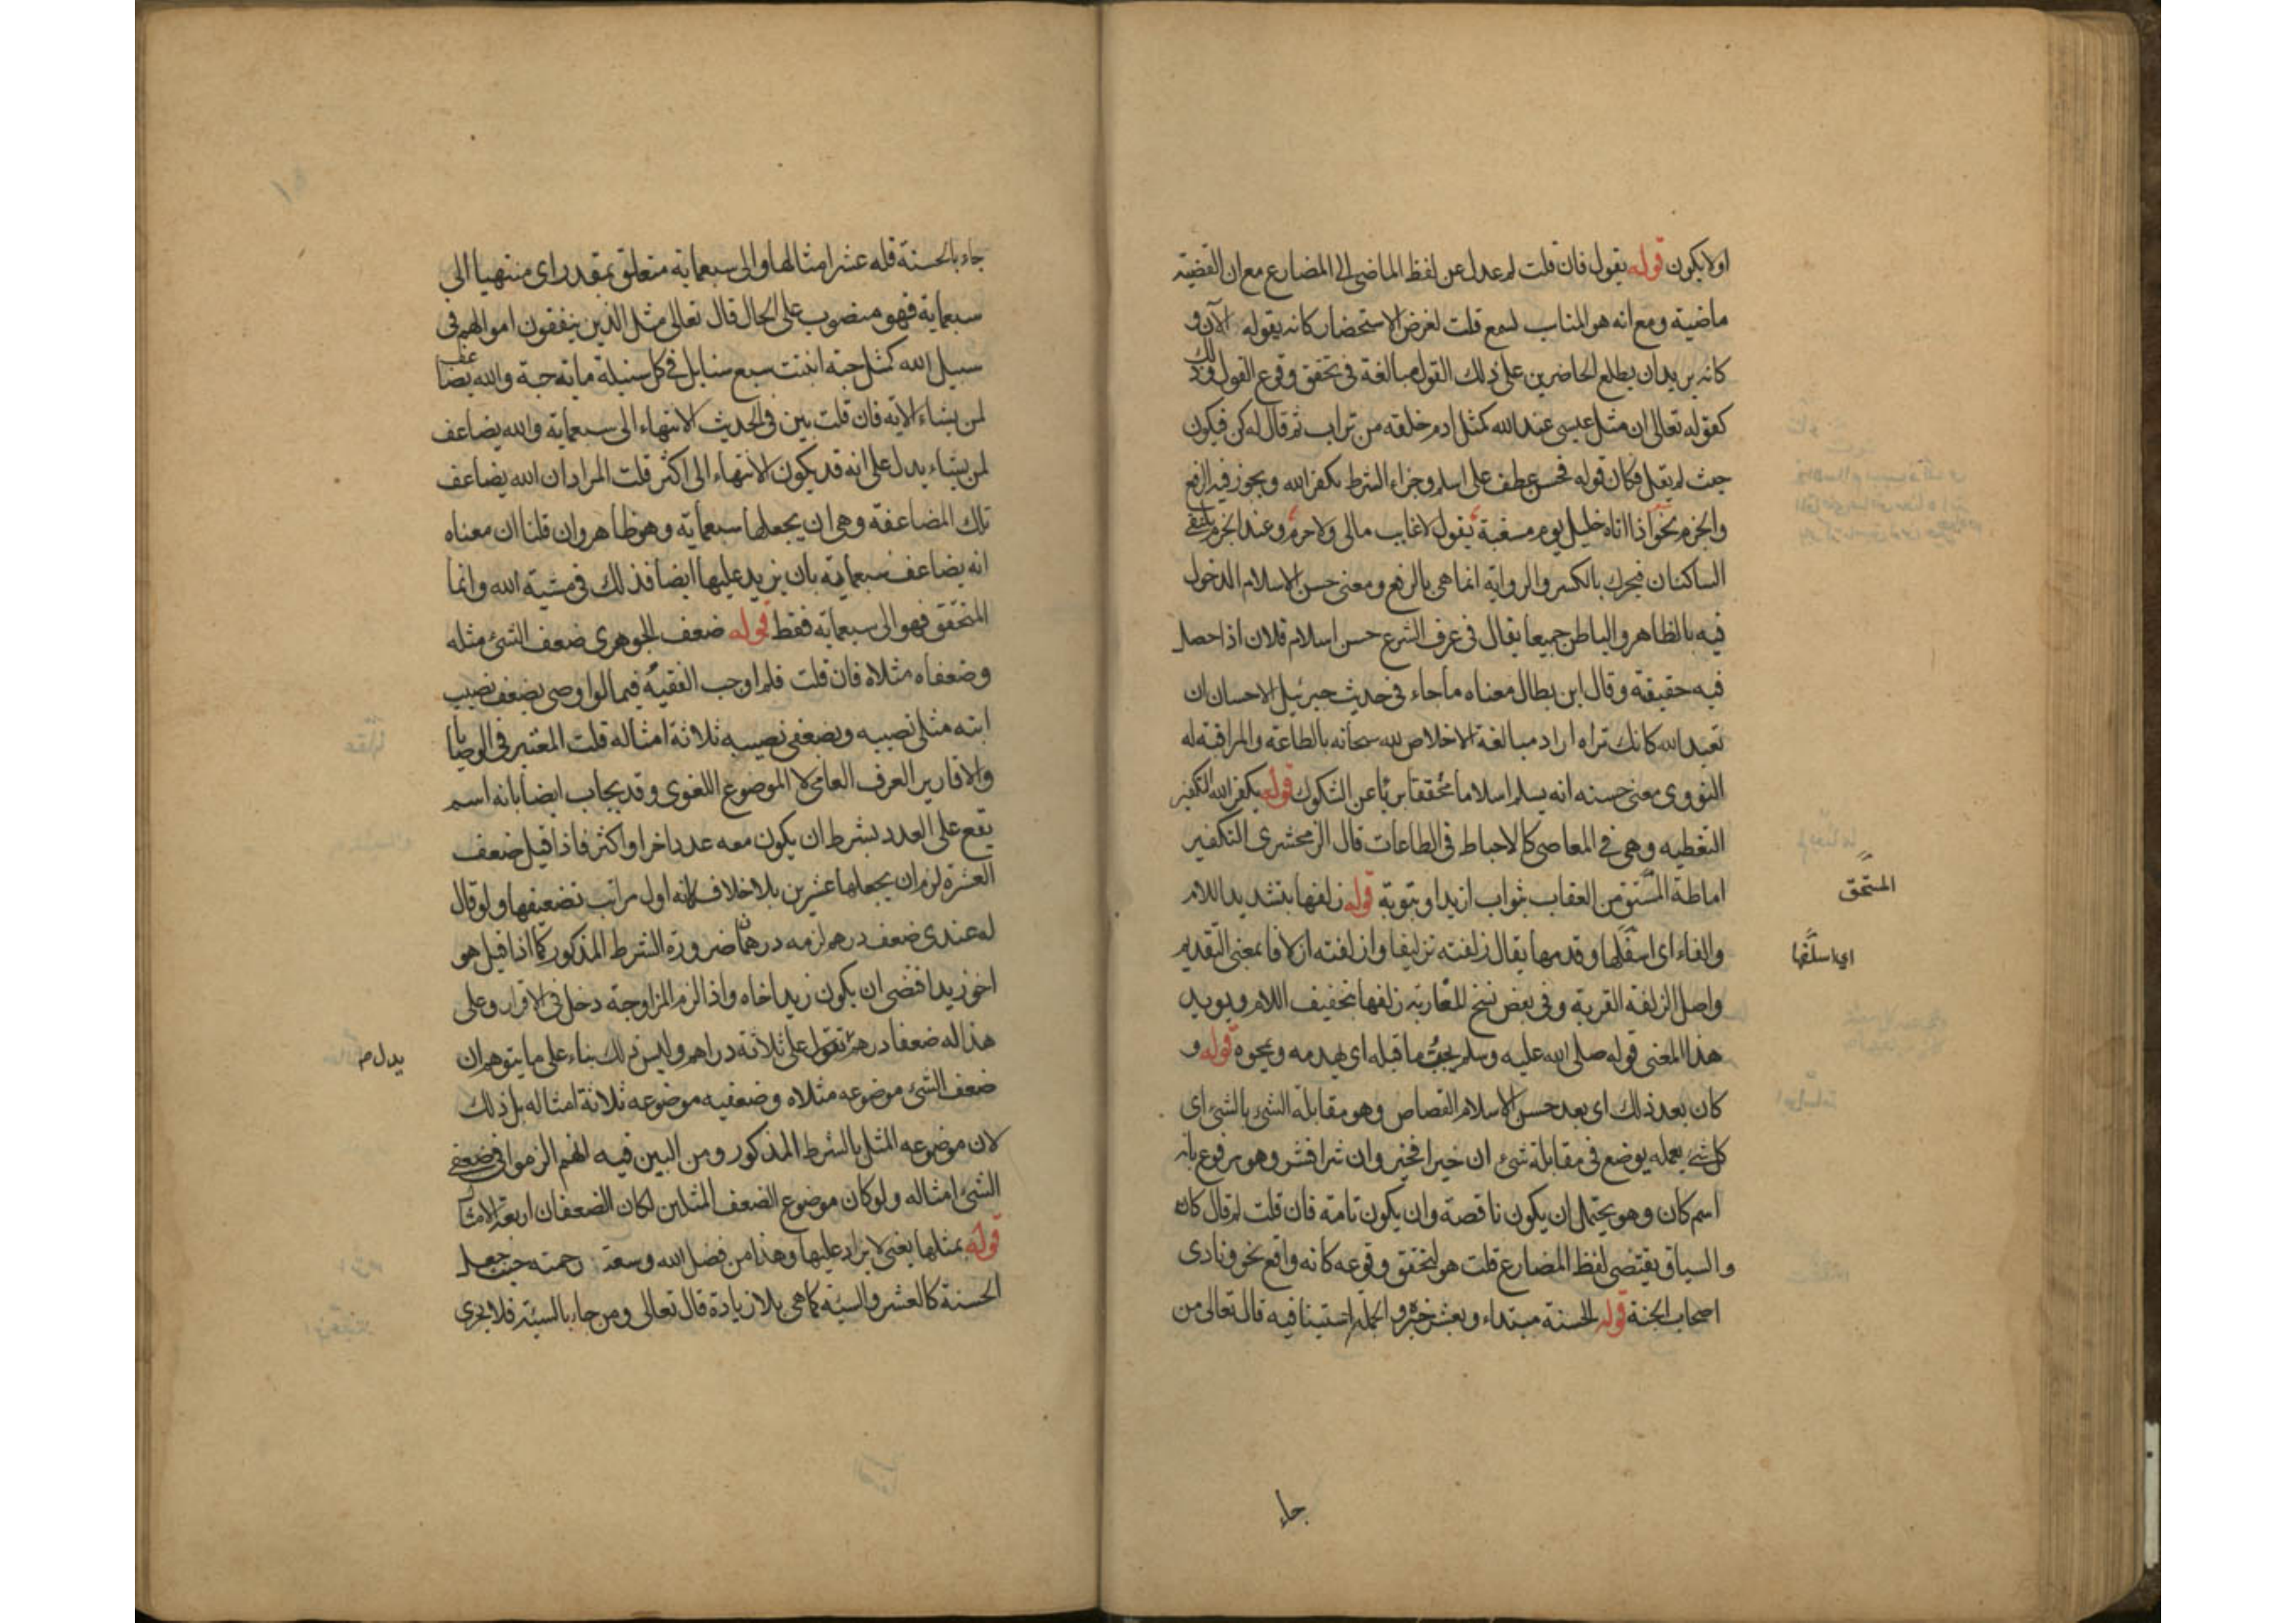 اولا يكون قوله يقول فان قلت لم عدل عن لفظ الماضى الى المضارع مع ان القضية
ماضية ومع انه هو المناسب لسمع قلت لغرض الاستحضار كانه يقوله الآن و
كانه يريد ان يطلع الحاضرين على ذلك القول مبالغة فى تحقق وقوع القول وذلك
كقوله تعالى ان مثل عيسى عند الله كمثل ادم خلقه من تراب ثم قال له كن فيكون
حيث لم يقل فكان قوله فحسن عطف على اسلم وجزاء الشرط يكفر الله ويجوز فيه الرفع
والجزم نحو اذا اتاه خليل يوم مسغبة يقول لا غايب مالى ولا حرم وعند الجزم يلتقى
الساكنان فيحرك بالكسر والرواية انما هى بالرفع ومعنى حسن الاسلام الدخول
فيه بالظاهر والباطن جميعا يقال فى عرف الشرع حسن اسلام فلان اذا حصل
فيه حقيقته وقال ابن بطال معناه ما جاء فى حديث جبرئيل الاحسان ان
تعبد الله كانك تراه اراد مبالغة الاخلاص لله سبحانه بالطاعة والمراقبة له
النووى معنى حسنه انه يسلم اسلاما محققا بريا عن الشكوك قوله يكفر الله التكفير
التغطيه وهى فى المعاصى كالاحباط فى الطاعات قال الزمحشرى التكفير
اماطة المستق من العقاب بثواب ازيد او بتوبة قوله زلفها بتشديد اللام
المستحق
والفاء اى اسفلها وقدمها يقال زلفته تزليفا وازلفته ازلافا بمعنى التقديم
اى اسلفها
واصل الزلفة القربة وفى بعض نسخ المغاربة زلفها بتخفيف اللام ويويد
هذا المعنى قوله صلى الله عليه وسلم يجب ما قبله اى يهدمه ويمحوه قوله و
كان بعد ذلك اى بعد حسن الاسلام القصاص وهو مقابلة الشئ بالشئ اى
كل شئ يعمله يوضع فى مقابلة شئ ان خيرا فخير وان شرا فشر وهو مرفوع بانه
اسم كان وهو يحتمل ان يكون ناقصة وان يكون تامة فان قلت لم قال كان
والسياق يقتضى لفظ المضارع قلت هو لتحقق وقوعه كانه واقع نحو ونادى
اصحاب الجنة قوله الحسنة مبتداء وبعشر خبره والجملة استينافيه قال تعالى من
جاء
جاء بالحسنة فله عشر امثالها والى سبعماية متعلق بمقدر اى منتهيا الى
سبعماية فهو منصوب على الحال قال تعالى مثل الذين ينفقون اموالهم فى
سبيل الله كمثل حبة انبتت سبع سنابل فى كل سنبلة ماية حبة والله يضاعف
لمن يشاء الاية فان قلت بين فى الحديث الانتهاء الى سبعماية والله يضاعف
لمن يشاء يدل على انه قد يكون الانتهاء الى اكثر قلت المراد ان الله يضاعف
تلك المضاعفة وهى ان يجعلها سبعماية وهو ظاهر وان قلنا ان معناه
انه يضاعف سبعماية بان يزيد عليها ايضا فذلك فى مشية الله وانما
المتحقق فهو الى سبعماية فقط قوله ضعف الجوهرى ضعف الشئ مثله
وضعفاه مثلاه فان قلت فلم اوجب الفقيه فيما لو اوصى بضعف نصيب
ابنه مثلى نصيبه وبضعفى نصيبه ثلاثة امثاله قلت المعتبر فى الوصايا
والاقارير العرف العامى لا الموضوع اللغوى وقد يجاب ايضا بانه اسم
يقع على العدد بشرط ان يكون معه عدد اخر او اكثر فاذا قيل ضعف
العشرة لزم ان يجعلها عشرين بلا خلاف لانه اول مراتب تضعيفها ولو قال
له عندى ضعف درهم لزمه درهمان ضرورة الشرط المذكور كما اذا قيل هو
اخو زيد اقتضى ان يكون زيد اخاه واذا لزم المزاوجة دخل فى الاقرار وعلى
هذا له ضعفا درهم تقول على ثلاثة دراهم وليس ذلك بناء على ما يتوهم ان
يدل
ضعف الشئ موضوعه مثلاه وضعفيه موضوعه ثلاثة امثاله بل ذلك
لان موضوعه المثل بالشرط المذكور ومن البين فيه انهم الزموا فى ضعفى
الشئ امثاله ولو كان موضوع الضعف المثلين لكان الضعفان اربعة الامثال
قوله بمثلها يعنى لا يزاد عليها وهذا من فضل الله وسعة رحمته حيث جعل
الحسنة كالعشر والسيئة كما هى بلا زيادة قال تعالى ومن جاء بالسيئة فلا يجزى